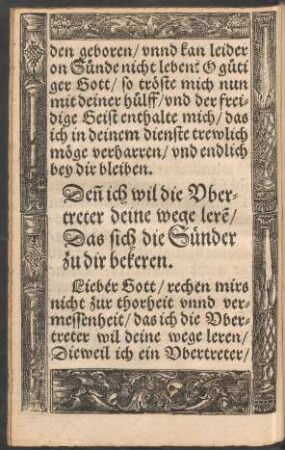 den geboren/ vnnd kan leider
on Sünde nicht leben: O güti
ger Gott/ so tröste mich nun
mit deiner hülff/ vnd der frei-
dige Geist enthalte mich/ das
ich in deinem dienste trewlich
möge verharren/ vnd endlich
bey dir bleiben.
Deñ ich wil die Vber-
treter deine wege lerẽ/
Das sich die Sünder
zu dir bekeren.
Lieber Gott/ rechen mirs
nicht zur thorheit vnnd ver-
messenheit/ das ich die Vber-
treter wil deine wege leren/
Dieweil ich ein Vbertreter/